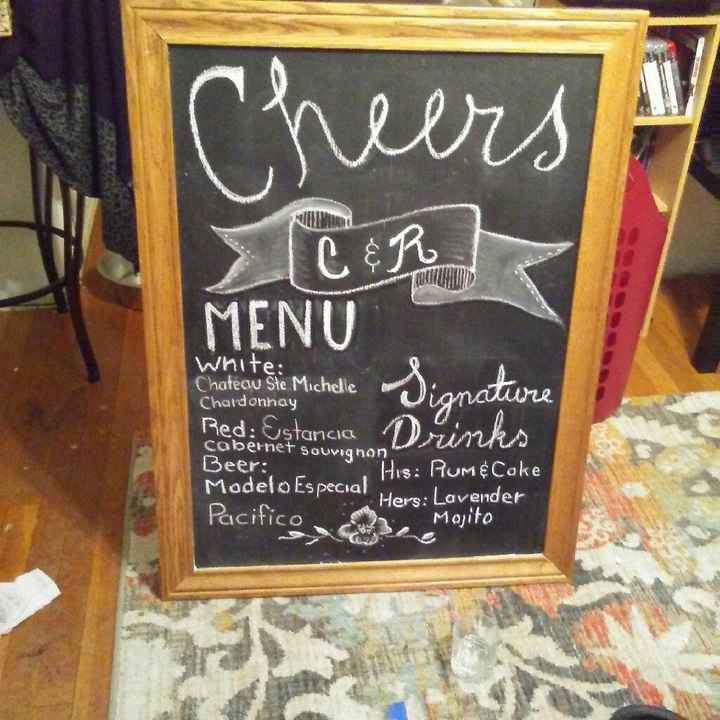 Cheers
C & R
MENU
White:
Chateau Ste Michelle
Chardonnay
Red: Estancia
Cabernet Sauvignon
Beer:
Modelo Especial
Pacifico
Signature
Drinks
His: Rum & Coke
Hers: Lavender
Mojito